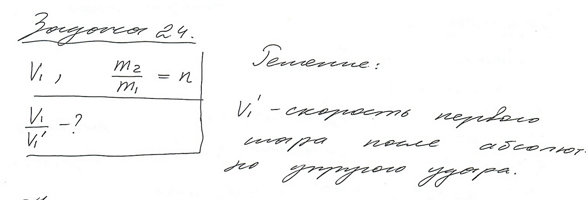 Задача 24.
V₁, m₂/m₁ = n
V₁/V₁' - ?
Решение:
V₁' - скорость первого
шара после абсолют-
но упругого удара.